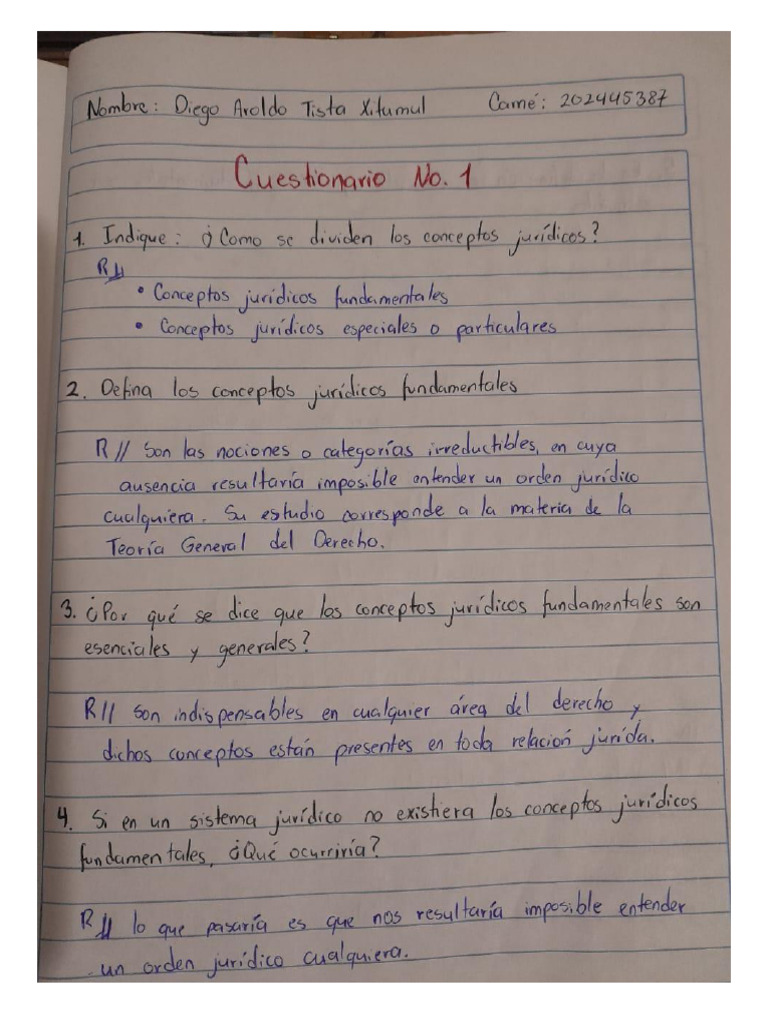 Nombre: Diego Aroldo Tista Xitumul Carné: 202445387
Cuestionario No. 1
1. Indique: ¿Como se dividen los conceptos jurídicos?
R//
• Conceptos jurídicos fundamentales
• Conceptos jurídicos especiales o particulares
2. Defina los conceptos jurídicos fundamentales
R// Son las nociones o categorías irreductibles, en cuya
ausencia resultaría imposible entender un orden jurídico
cualquiera. Su estudio corresponde a la materia de la
Teoría General del Derecho.
3. ¿Por qué se dice que los conceptos jurídicos fundamentales son
esenciales y generales?
R// Son indispensables en cualquier área del derecho y
dichos conceptos están presentes en toda relación jurída.
4. Si en un sistema jurídico no existiera los conceptos jurídicos
fundamentales, ¿Qué ocurriría?
R// lo que pasaría es que nos resultaría imposible entender
un orden jurídico cualquiera.